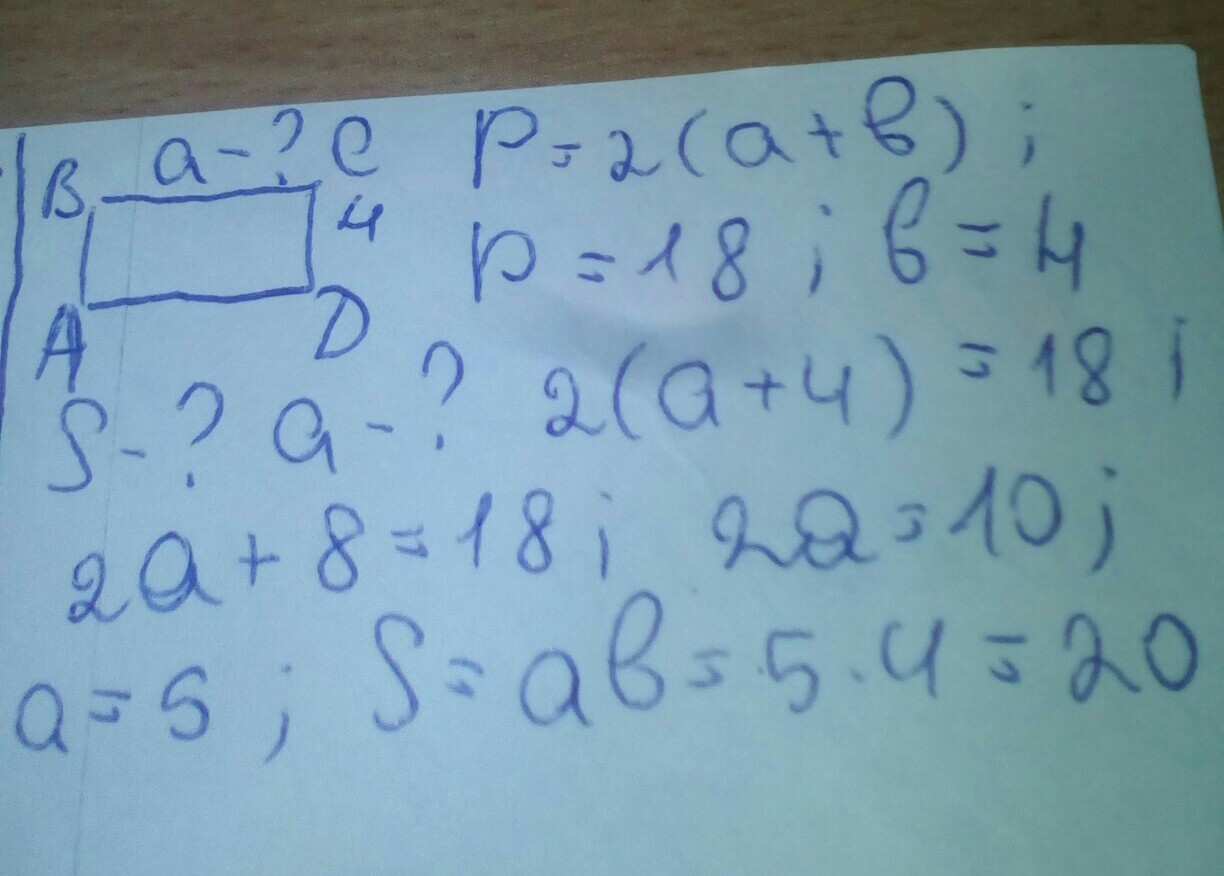 a-? P=2(a+в);
B C
4 P=18; в=4
A D
S-? a-? 2(a+4)=18;
2a+8=18; 2a=10;
a=5; S=aв=5·4=20